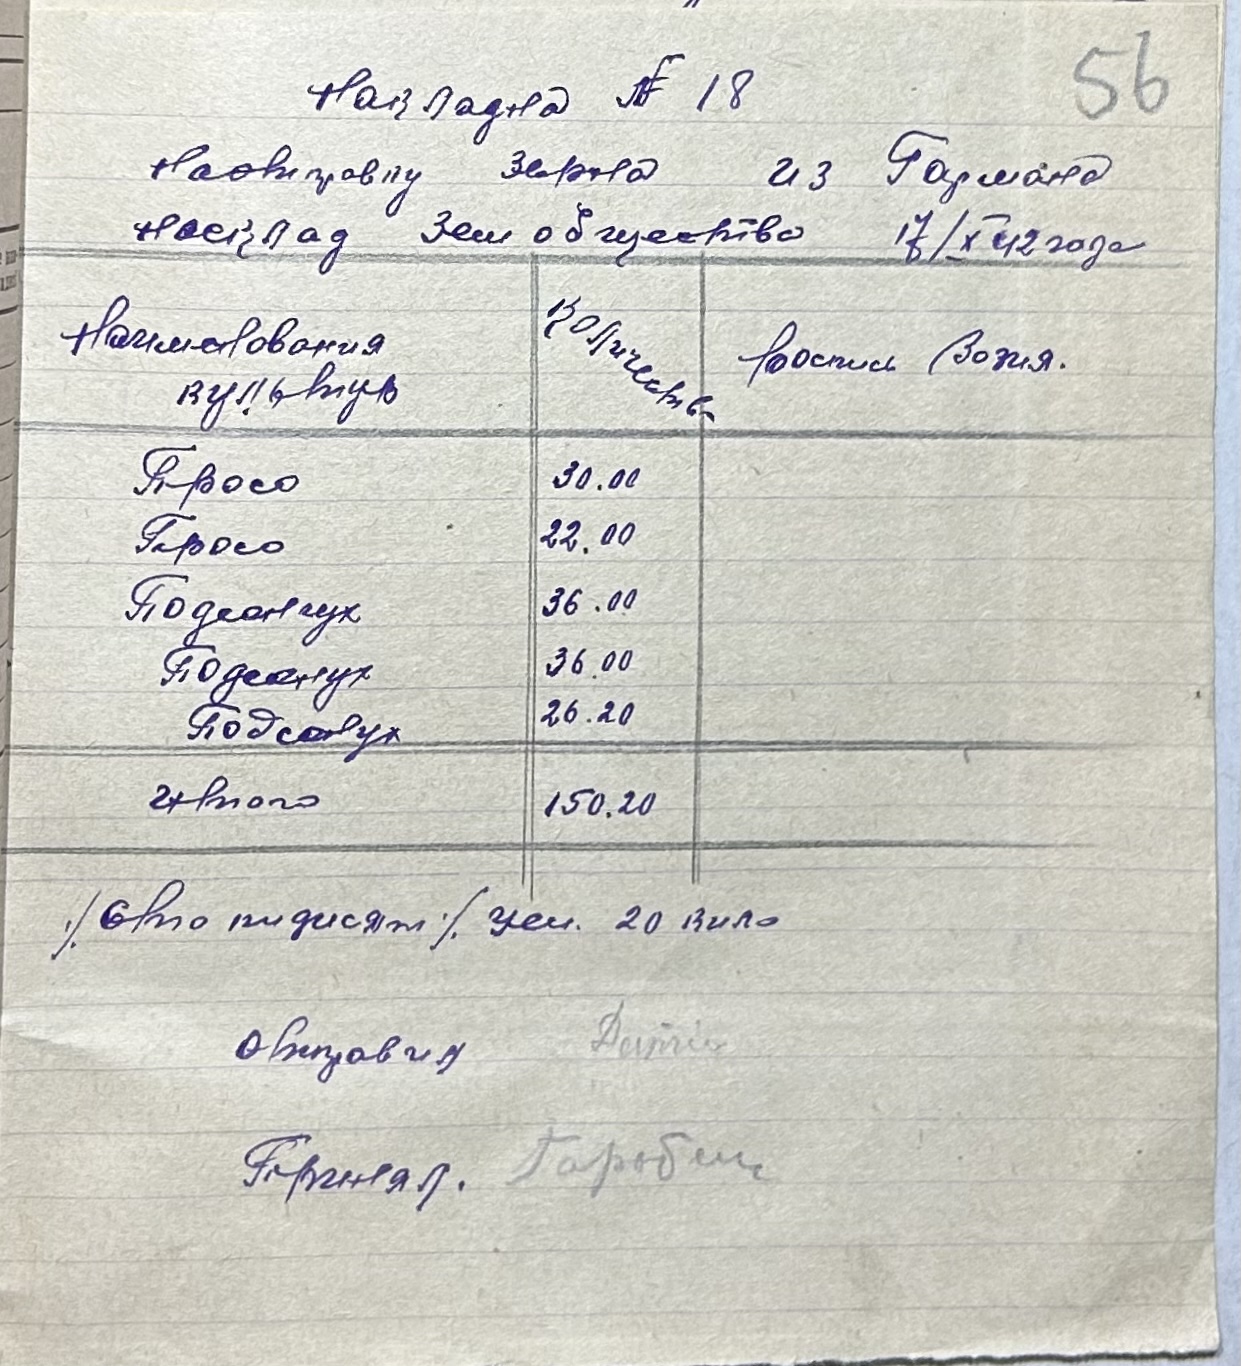 56
Накладна № 18
Наотправку зерна из Гармана
насклад Зем общество 17/X 42 года
Наименования культур Количество роспись Возчия.
Просо 30.00
Просо 22.00
Подсонух 36.00
Подсонух 36.00
Подсонух 26.20
Итого 150.20
/Сто пидисят/ цен. 20 кило
Отправил
Принял.